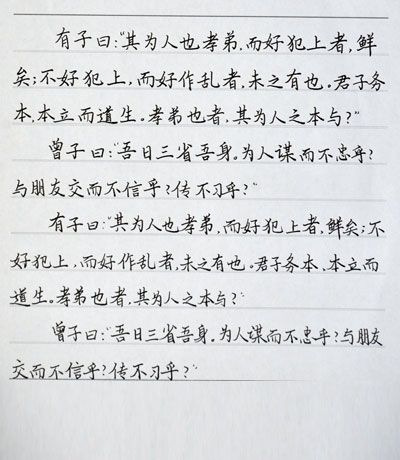 有子曰:“其为人也孝弟,而好犯上者,鲜
矣;不好犯上,而好作乱者,未之有也。君子务
本,本立而道生。孝弟也者,其为人之本与?”
曾子曰:“吾日三省吾身。为人谋而不忠乎?
与朋友交而不信乎?传不习乎?”
有子曰:“其为人也孝弟,而好犯上者,鲜矣;不
好犯上,而好作乱者,未之有也。君子务本,本立而
道生。孝弟也者,其为人之本与?”
曾子曰:“吾日三省吾身。为人谋而不忠乎?与朋友
交而不信乎?传不习乎?”